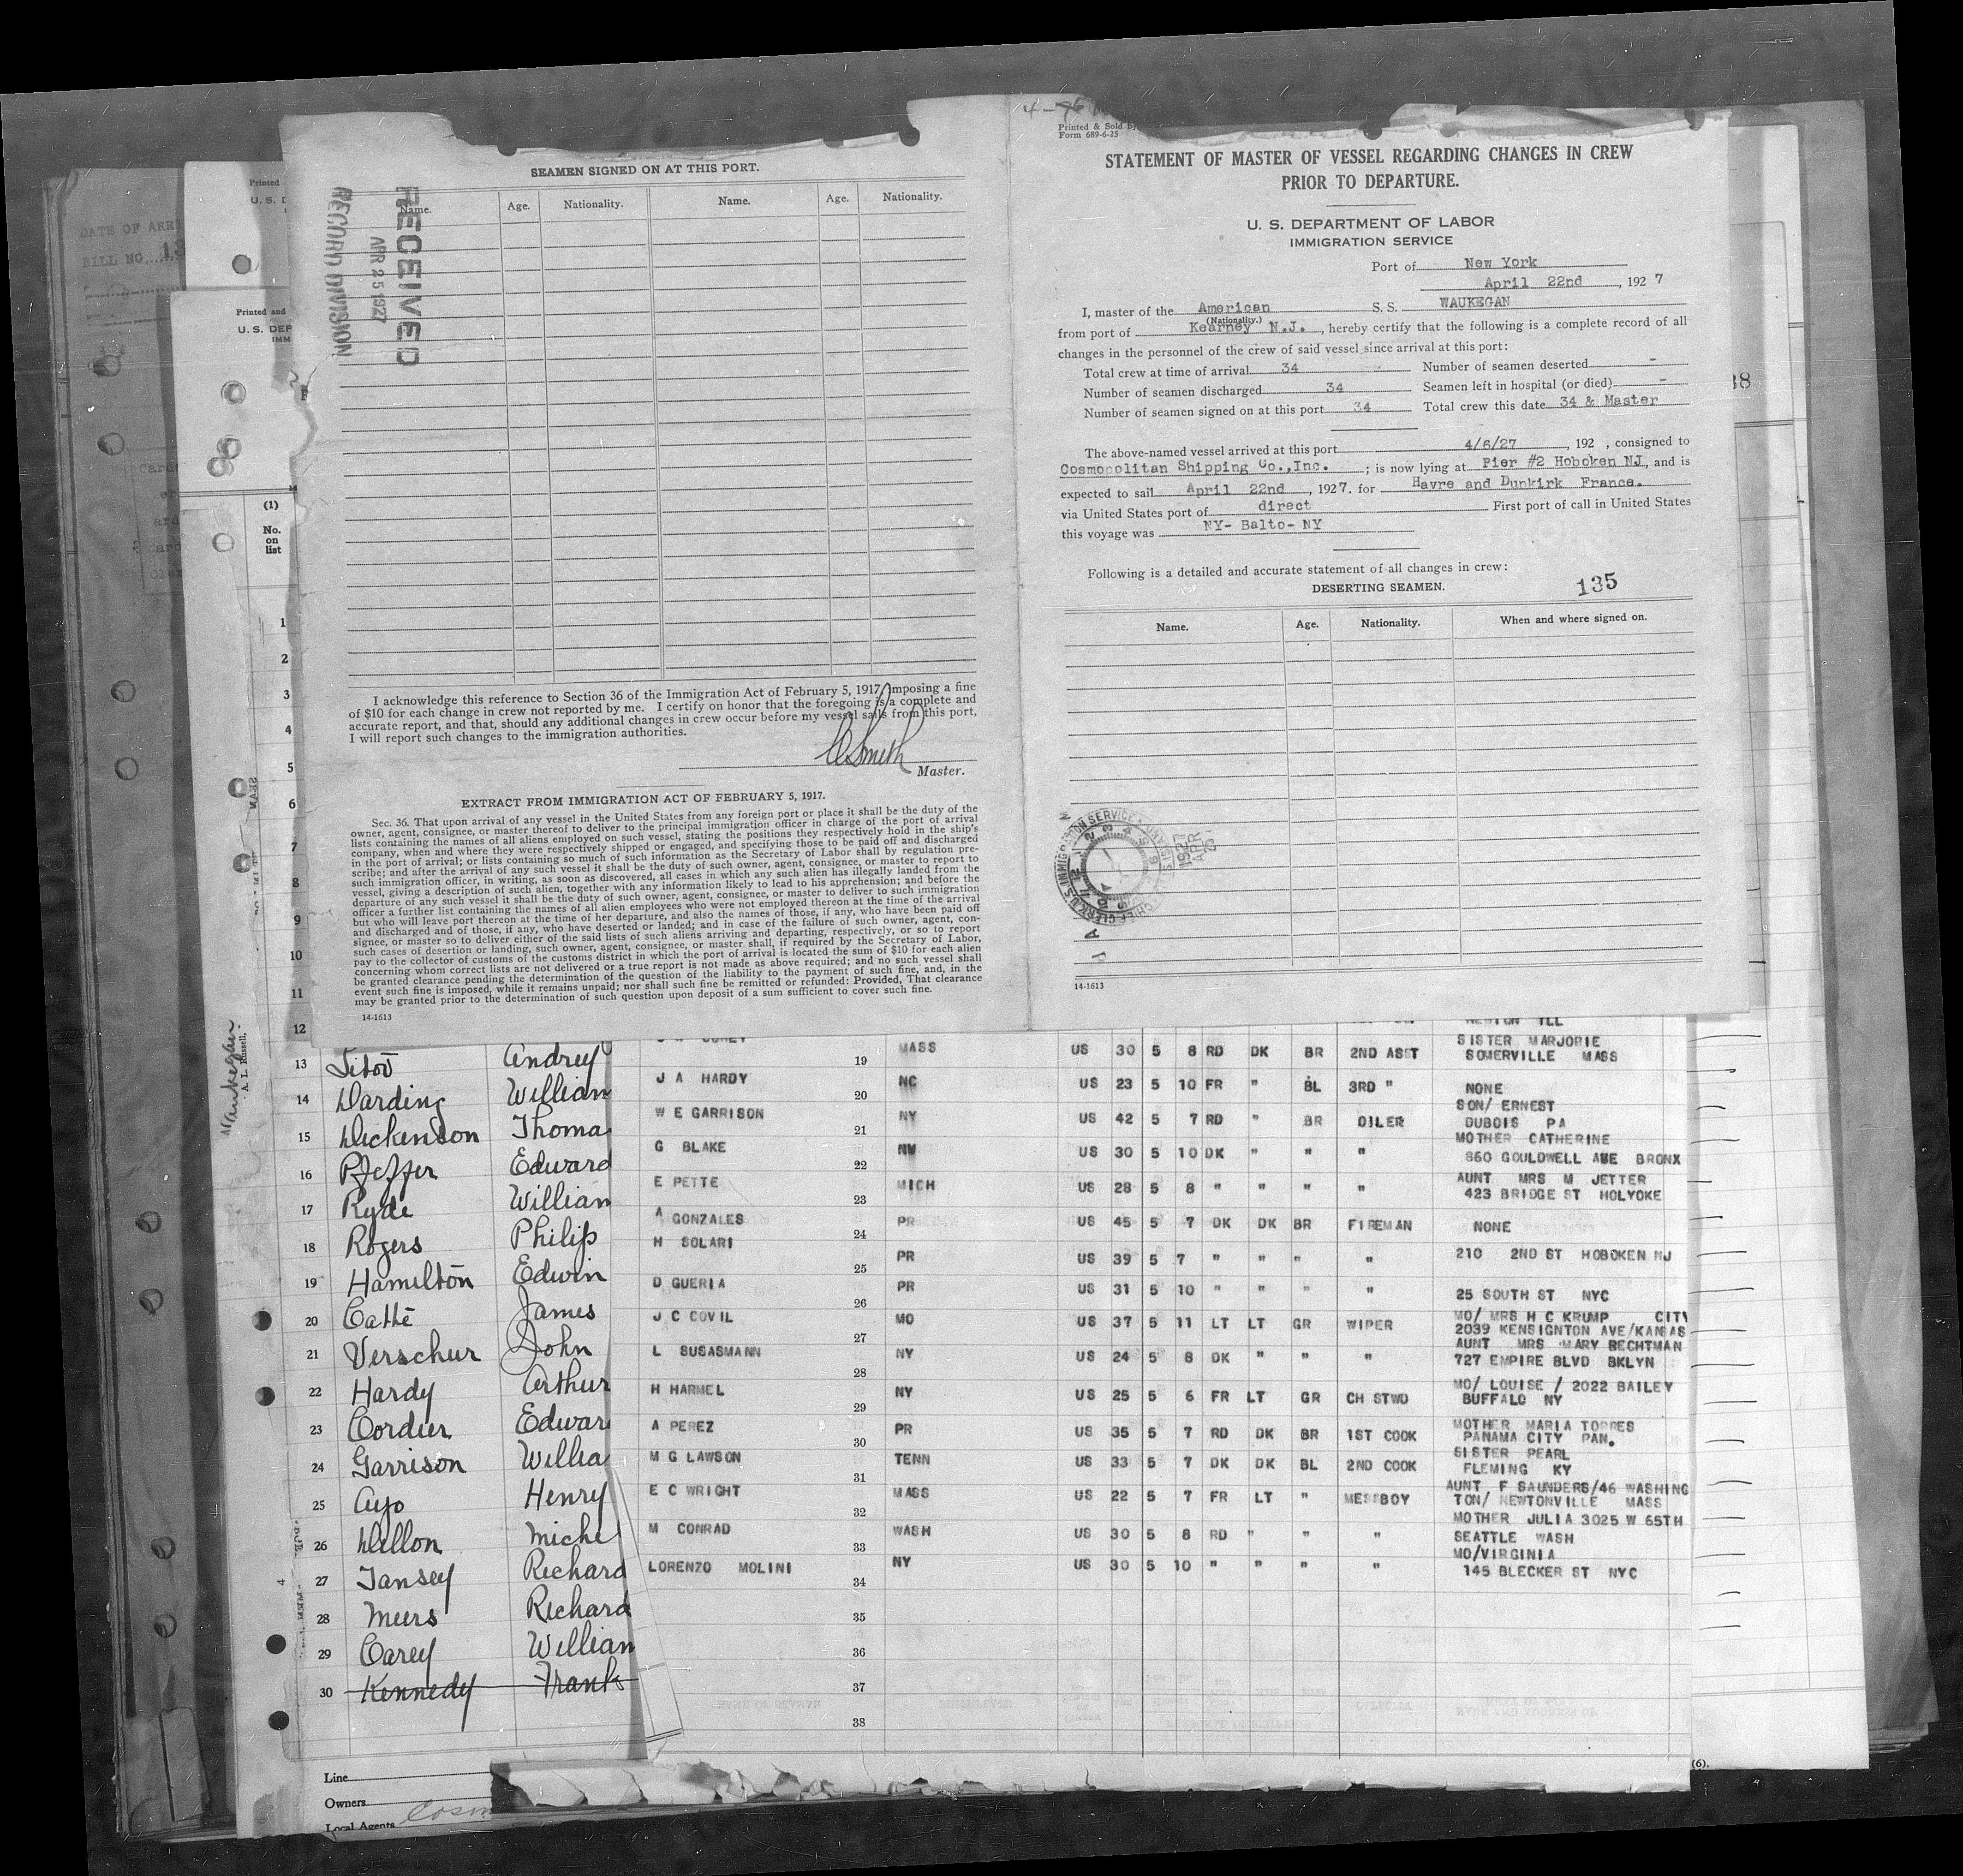 SEAMEN SIGNED ON AT THIS PORT.
Name. Age. Nationality. Name. Age. Nationality.
RECEIVED
APR 25 1927
RECORD DIVISION
I acknowledge this reference to Section 36 of the Immigration Act of February 5, 1917, imposing a fine
of $10 for each change in crew not reported by me. I certify on honor that the foregoing is a complete and
accurate report, and that, should any additional changes in crew occur before my vessel sails from this port,
I will report such changes to the immigration authorities.
Smith
Master.
EXTRACT FROM IMMIGRATION ACT OF FEBRUARY 5, 1917.
Sec. 36. That upon arrival of any vessel in the United States from any foreign port or place it shall be the duty of the
owner, agent, consignee, or master thereof to deliver to the principal immigration officer in charge of the port of arrival
lists containing the names of all aliens employed on such vessel, stating the positions they respectively hold in the ship's
company, when and where they were respectively shipped or engaged, and specifying those to be paid off and discharged
in the port of arrival; or lists containing so much of such information as the Secretary of Labor shall by regulation pre-
scribe; and after the arrival of any such vessel it shall be the duty of such owner, agent, consignee, or master to report to
such immigration officer, in writing, as soon as discovered, all cases in which any such alien has illegally landed from the
vessel, giving a description of such alien, together with any information likely to lead to his apprehension; and before the
departure of any such vessel it shall be the duty of such owner, agent, consignee, or master to deliver to such immigration
officer a further list containing the names of all alien employees who were not employed thereon at the time of the arrival
but who will leave port thereon at the time of her departure, and also the names of those, if any, who have been paid off
and discharged and of those, if any, who have deserted or landed; and in case of the failure of such owner, agent, con-
signee, or master so to deliver either of the said lists of such aliens arriving and departing, respectively, or so to report
such cases of desertion or landing, such owner, agent, consignee, or master shall, if required by the Secretary of Labor,
pay to the collector of customs of the customs district in which the port of arrival is located the sum of $10 for each alien
concerning whom correct lists are not delivered or a true report is not made as above required; and no such vessel shall
be granted clearance pending the determination of the question of the liability to the payment of such fine, and, in the
event such fine is imposed, while it remains unpaid; nor shall such fine be remitted or refunded: Provided, That clearance
may be granted prior to the determination of such question upon deposit of a sum sufficient to cover such fine.
14-1613
Printed & Sold by
Form 689-6-25
STATEMENT OF MASTER OF VESSEL REGARDING CHANGES IN CREW
PRIOR TO DEPARTURE.
U. S. DEPARTMENT OF LABOR
IMMIGRATION SERVICE
Port of New York
April 22nd, 1927
I, master of the American S. S. WAUKEGAN
(Nationality.)
from port of Kearney N.J., hereby certify that the following is a complete record of all
changes in the personnel of the crew of said vessel since arrival at this port:
Total crew at time of arrival 34 Number of seamen deserted -
Number of seamen discharged 34 Seamen left in hospital (or died) -
Number of seamen signed on at this port 34 Total crew this date 34 & Master
The above-named vessel arrived at this port 4/6/27, 192 , consigned to
Cosmopolitan Shipping Co.,Inc. ; is now lying at Pier #2 Hoboken NJ, and is
expected to sail April 22nd, 1927. for Havre and Dunkirk France.
via United States port of direct First port of call in United States
this voyage was NY- Balto- NY
Following is a detailed and accurate statement of all changes in crew:
DESERTING SEAMEN. 135
Name. Age. Nationality. When and where signed on.
14-1613
DATE OF ARRI
BILL NO. 13
Printed
U. S. D
Printed and
U. S. DEP
IMM
(1)
No.
on
list
1
2
3
4
5
6
7
8
9
10
11
12
Waukegan
A. L. Russell,
13 Titov Andrey
14 Harding William
15 Dickenson Thoma
16 Pfeffer Edward
17 Ryde William
18 Rogers Philip
19 Hamilton Edwin
20 Catte James
21 Verschur John
22 Hardy Arthur
23 Cordier Edwar
24 Garrison Willia
25 Ayo Henry
26 Dillon Michel
27 Tansey Richard
28 Meers Richard
29 Carey William
30 Kennedy Frank
Line
Owners
Local Agents Cosm
NEWTON ILL
19 MASS US 30 5 8 RD DK BR 2ND ASST SISTER MARJORIE
SOMERVILLE MASS
J A HARDY 20 NC US 23 5 10 FR " BL 3RD " NONE
W E GARRISON 21 NY US 42 5 7 RD " BR OILER SON/ ERNEST
DUBOIS PA
G BLAKE 22 NM US 30 5 10 DK " " " MOTHER CATHERINE
860 GOULDWELL AUE BRONX
E PETTE 23 MICH US 28 5 8 " " " " AUNT MRS M JETTER
423 BRIDGE ST HOLYOKE
A GONZALES 24 PR US 45 5 7 DK DK BR FIREMAN NONE
H SOLARI 25 PR US 39 5 7 " " " " 210 2ND ST HOBOKEN NJ
D GUERIA 26 PR US 31 5 10 " " " " 25 SOUTH ST NYC
J C COVIL 27 MO US 37 5 11 LT LT GR WIPER MO/ MRS H C KRUMP CITY
2039 KENSIGNTON AVE/KANSAS
L SUSASMANN 28 NY US 24 5 8 DK " " " AUNT MRS MARY RECHTMAN
727 EMPIRE BLVD BKLYN
H HARMEL 29 NY US 25 5 6 FR LT GR CH STWD MO/ LOUISE / 2022 BAILEY
BUFFALO NY
A PEREZ 30 PR US 35 5 7 RD DK BR 1ST COOK MOTHER MARIA TORRES
PANAMA CITY PAN.
M G LAWSON 31 TENN US 33 5 7 DK DK BL 2ND COOK SISTER PEARL
FLEMING KY
E C WRIGHT 32 MASS US 22 5 7 FR LT " MESSBOY AUNT F SAUNDERS/46 WASHING
TON/ NEWTONVILLE MASS
M CONRAD 33 WASH US 30 5 8 RD " " " MOTHER JULIA 3025 W 65TH
SEATTLE WASH
LORENZO MOLINI 34 NY US 30 5 10 " " " " MO/VIRGINIA
145 BLECKER ST NYC
35
36
37
38
(6).